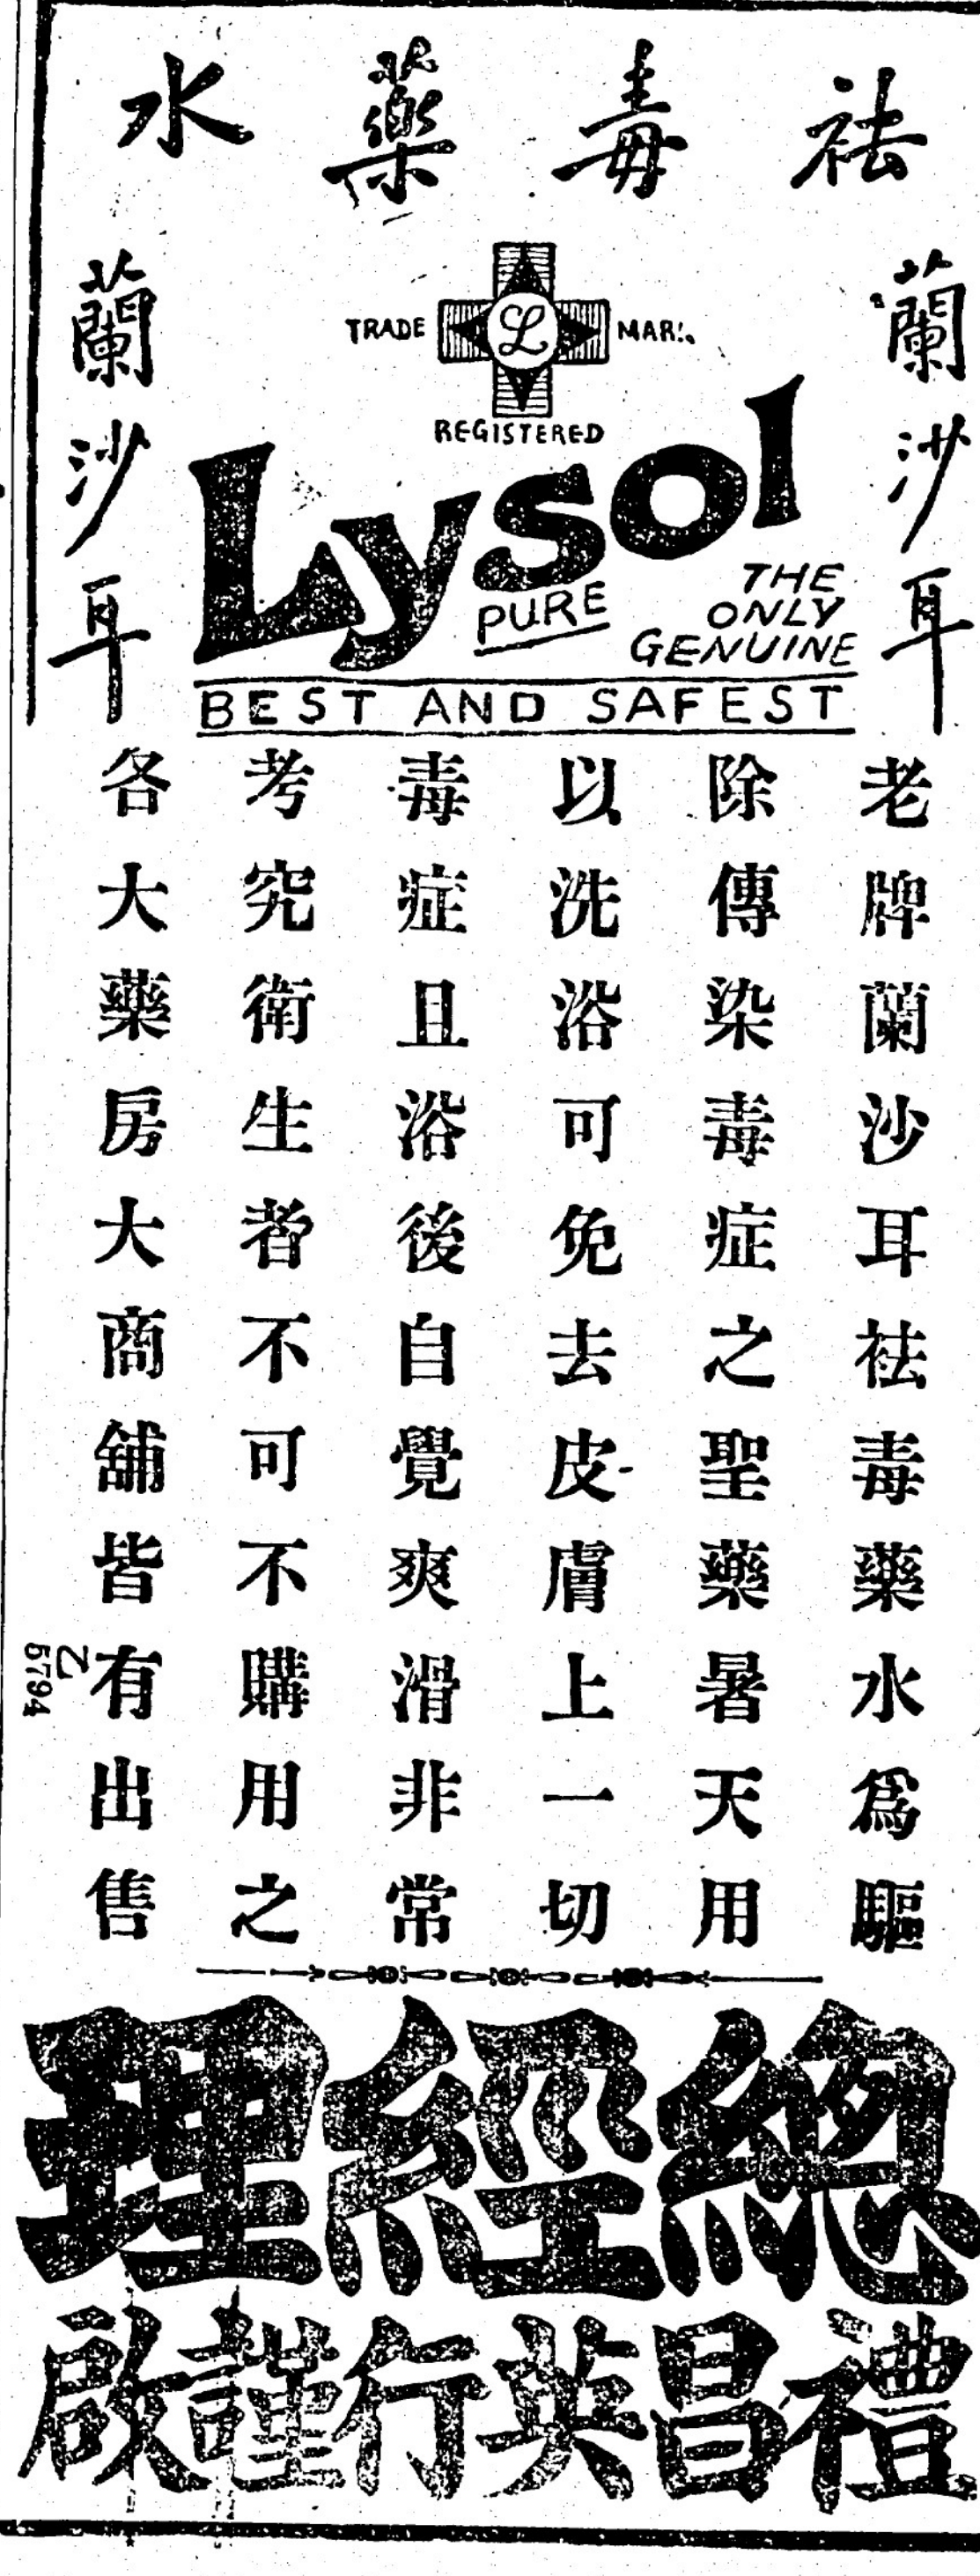 祛毒藥水
蘭沙耳
蘭沙耳
TRADE MARK
L
REGISTERED
Lysol
PURE
THE
ONLY
GENUINE
BEST AND SAFEST
老牌蘭沙耳祛毒藥水爲驅
除傳染毒症之聖藥暑天用
以洗浴可免去皮膚上一切
毒症且浴後自覺爽滑非常
考究衛生者不可不購用之
各大藥房大商舖皆有出售
乙
5794
總經理
禮昌英行謹啟